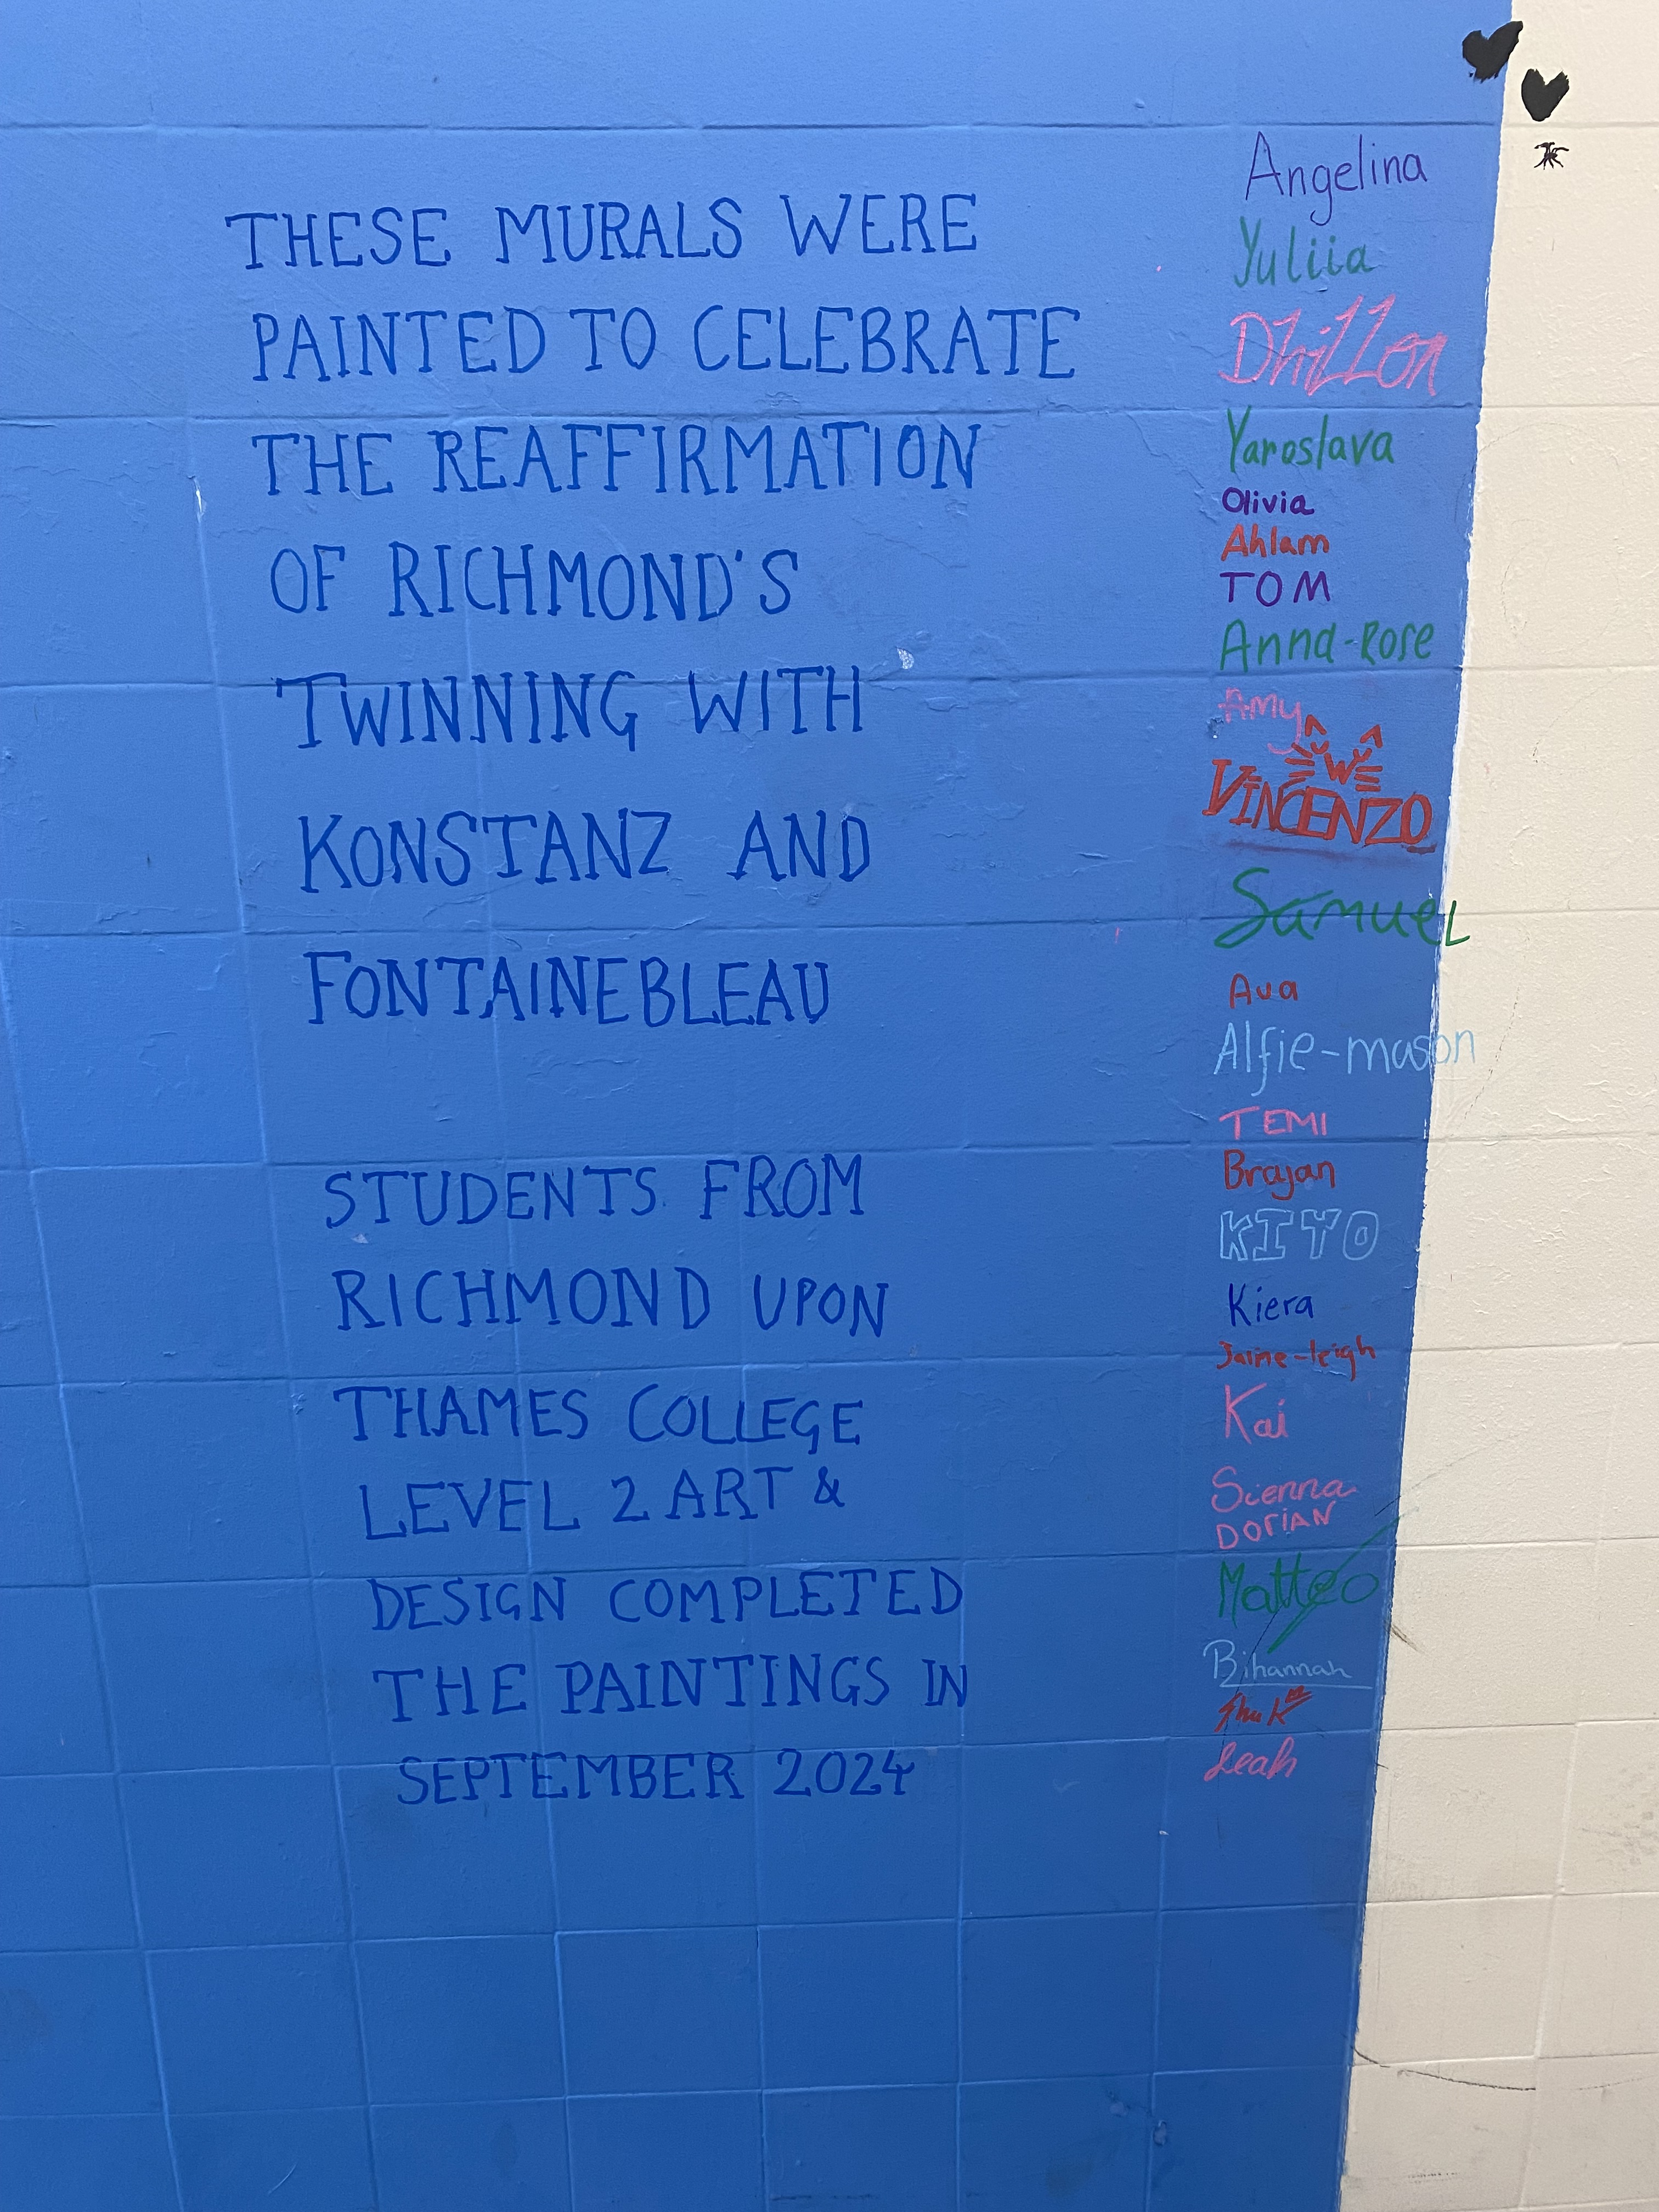 THESE MURALS WERE
PAINTED TO CELEBRATE
THE REAFFIRMATION
OF RICHMOND'S
TWINNING WITH
KONSTANZ AND
FONTAINEBLEAU
STUDENTS FROM
RICHMOND UPON
THAMES COLLEGE
LEVEL 2 ART &
DESIGN COMPLETED
THE PAINTINGS IN
SEPTEMBER 2024
Angelina
Yuliia
Dhillon
Yaroslava
Olivia
Ahlam
TOM
Anna-Rose
Amy
VINCENZO
Samuel
Ava
Alfie-mason
TEMI
Brajan
KIYO
Kiera
Jaime-leigh
Kai
Sienna
DORIAN
Matteo
Bihannah
Leah